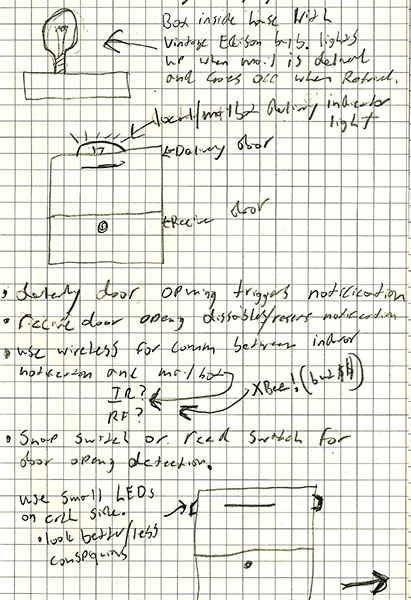 Box inside house with
Vintage Edison bulb. lights
up when mail is deliverd
and Goes off when Retreived.
local/mailbox Delivery indicator
light
Delivery door
Recive door
• delivery door opening triggers notification
• recive door opening dissables/resets notification
• use wireless for comm between indoor
notification and mailbox
IR?
XBee! (but $$)
RF?
• Snap switch or reed switch for
door opening detection.
use small LEDs
on each side.
• look better/less